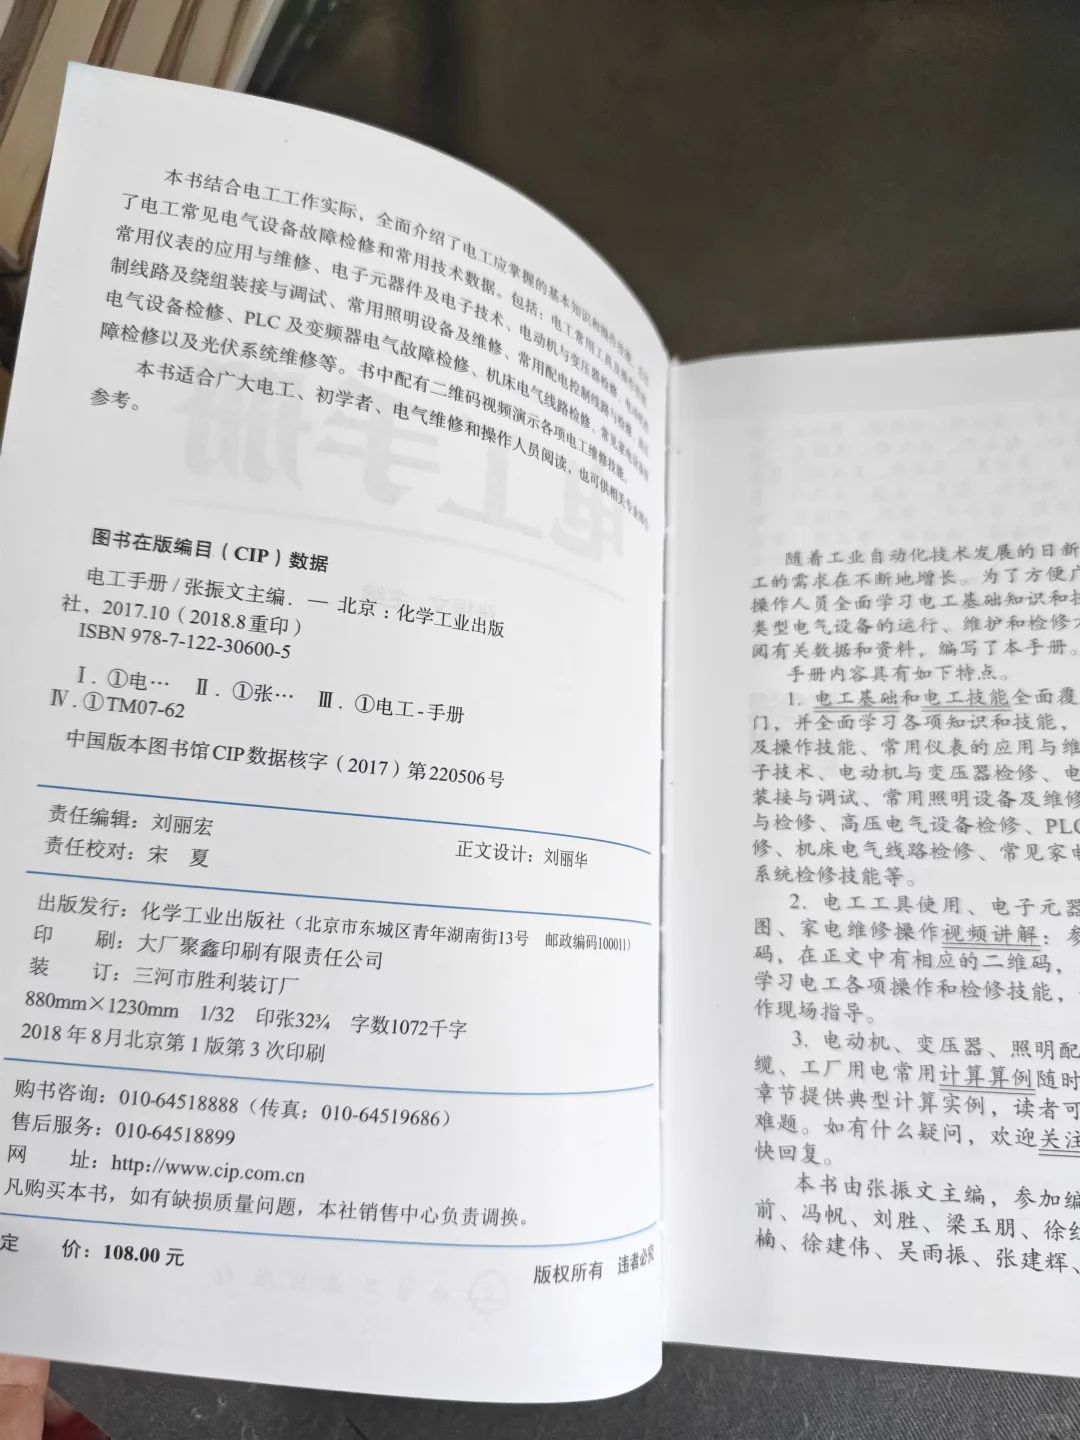 本书结合电工工作实际，全面介绍了电工应掌握的基本知识和操作技能，
了电工常见电气设备故障检修和常用技术数据。包括：电工常用工具及
常用仪表的应用与维修、电子元器件及电子技术、电动机与变压器检修、
制线路及绕组装接与调试、常用照明设备及维修、常用配电控制线路与检修、
电气设备检修、PLC 及变频器电气故障检修、机床电气线路检修、常见家电
障检修以及光伏系统维修等。书中配有二维码视频演示各项电工维修技能。
本书适合广大电工、初学者、电气维修和操作人员阅读，也可供相关专业
参考。
图书在版编目（CIP）数据
电工手册 / 张振文主编. — 北京：化学工业出版
社，2017.10（2018.8重印）
ISBN 978-7-122-30600-5
Ⅰ. ①电… Ⅱ. ①张… Ⅲ. ①电工-手册
Ⅳ. ①TM07-62
中国版本图书馆CIP数据核字（2017）第220506号
责任编辑：刘丽宏
正文设计：刘丽华
责任校对：宋　夏
出版发行：化学工业出版社（北京市东城区青年湖南街13号　邮政编码100011）
印　　刷：大厂聚鑫印刷有限责任公司
装　　订：三河市胜利装订厂
880mm×1230mm　1/32　印张32¾　字数1072千字
2018年8月北京第1版第3次印刷
购书咨询：010-64518888（传真：010-64519686）
售后服务：010-64518899
网　　址：http://www.cip.com.cn
凡购买本书，如有缺损质量问题，本社销售中心负责调换。
定　　价：108.00 元
版权所有　违者必究
随着工业自动化技术发展的日新
工的需求在不断地增长。为了方便广
操作人员全面学习电工基础知识和技
类型电气设备的运行、维护和检修
阅有关数据和资料，编写了本手册。
手册内容具有如下特点。
1. 电工基础和电工技能全面覆
门，并全面学习各项知识和技能，
及操作技能、常用仪表的应用与维
子技术、电动机与变压器检修、电
装接与调试、常用照明设备及维修
与检修、高压电气设备检修、PLC
修、机床电气线路检修、常见家电
系统检修技能等。
2. 电工工具使用、电子元器
图、家电维修操作视频讲解：参
码，在正文中有相应的二维码，
学习电工各项操作和检修技能，
作现场指导。
3. 电动机、变压器、照明配
缆、工厂用电常用计算算例随时
章节提供典型计算实例，读者可
难题。如有什么疑问，欢迎关注
快回复。
本书由张振文主编，参加编
前、冯帆、刘胜、梁玉朋、徐红
楠、徐建伟、吴雨振、张建辉、